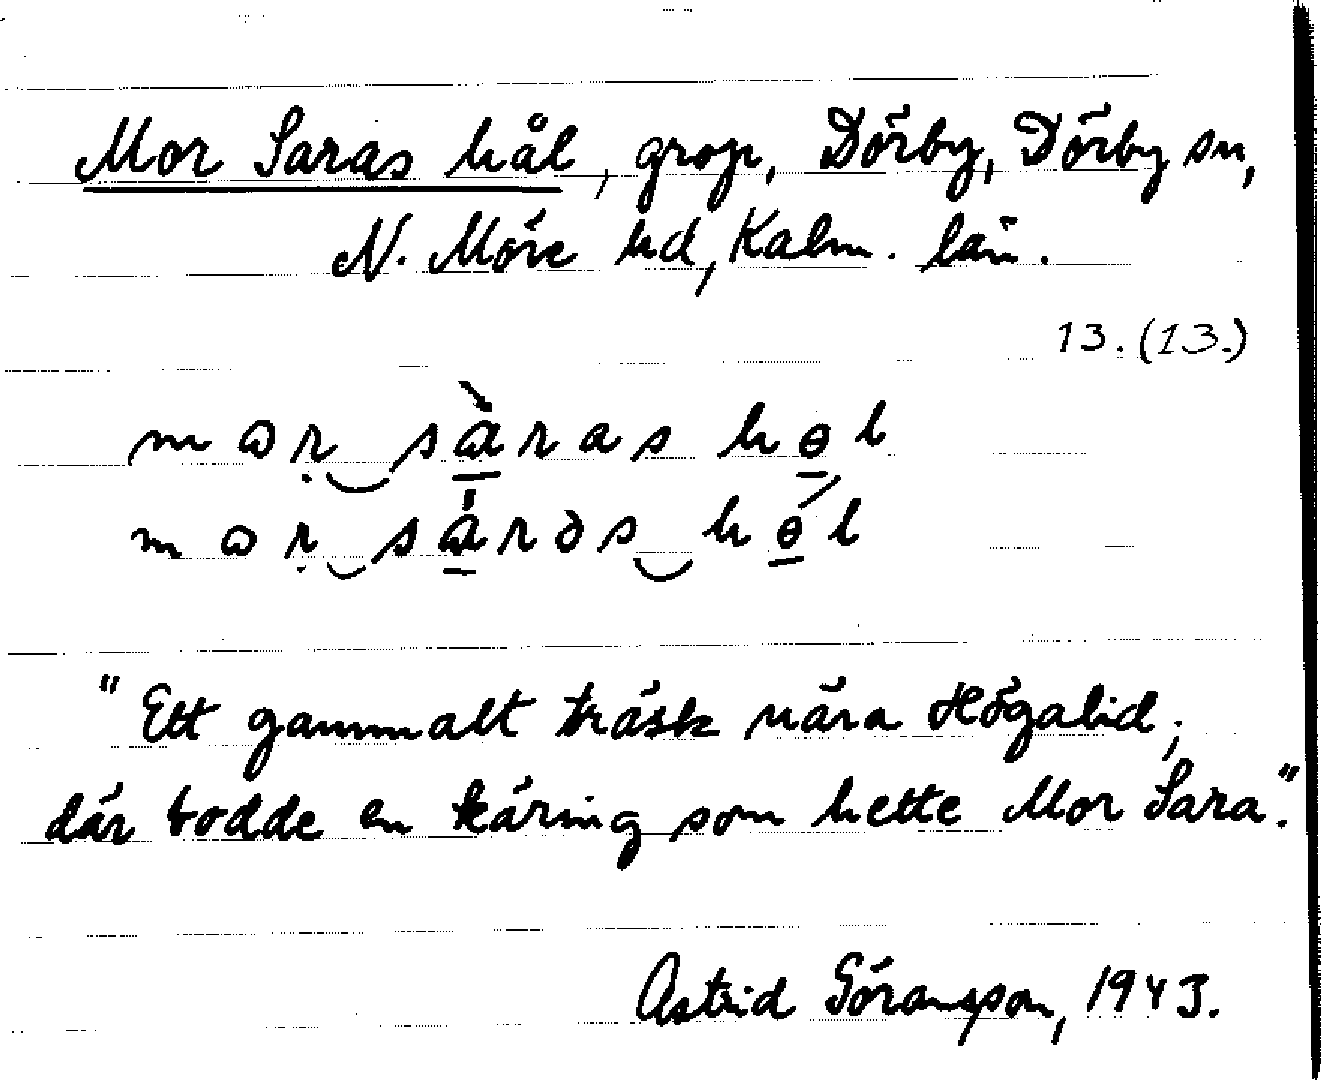 Mor Saras hål, grop, Dörby, Dörby sn,
N. Möre hd, Kalm. län.
13. (13.)
mɷr sàras hɵl
mɷr sárəs hɵ́l
"Ett gammalt träsk nära Högalid;
där bodde en käring som hette Mor Sara."
Astrid Göransson, 1943.